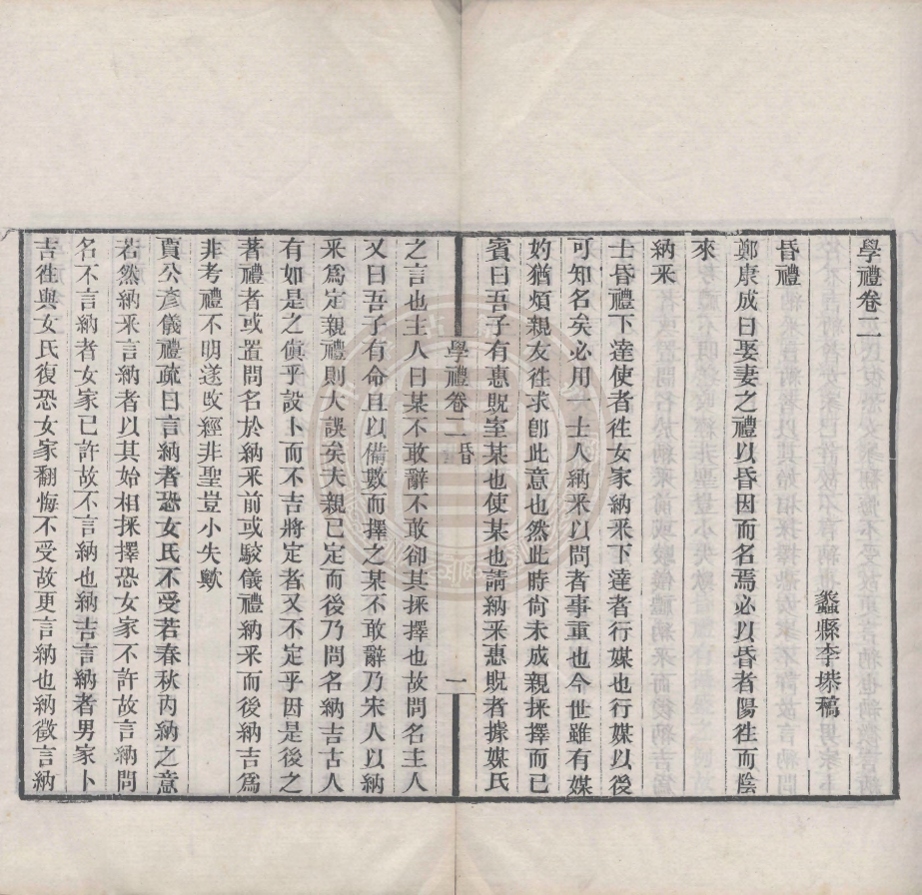 學禮卷二
蠡縣李塨稿
昏禮
鄭康成曰娶妻之禮以昏因而名焉必以昏者陽徃而陰
來
納采
士昏禮下達使者徃女家納采下達者行媒也行媒以後
可知名矣必用一士人納采以問者事重也今世雖有媒
妁猶煩親友徃求卽此意也然此時尙未成親採擇而已
賓曰吾子有惠貺室某也使某也請納采惠貺者據媒氏
學禮卷二 昏
一
之言也主人曰某不敢辭不敢卻其採擇也故問名主人
又曰吾子有命且以備數而擇之某不敢辭乃宋人以納
采爲定親禮則大誤矣夫親已定而後乃問名納吉古人
有如是之傎乎設卜而不吉將定者又不定乎因是後之
著禮者或置問名於納采前或駮儀禮納采而後納吉爲
非考禮不明遂攺經非聖豈小失歟
賈公彥儀禮疏曰言納者恐女氏不受若春秋內納之意
若然納采言納者以其始相採擇恐女家不許故言納問
名不言納者女家已許故不言納也納吉言納者男家卜
吉徃與女氏復恐女家翻悔不受故更言納也納徵言納